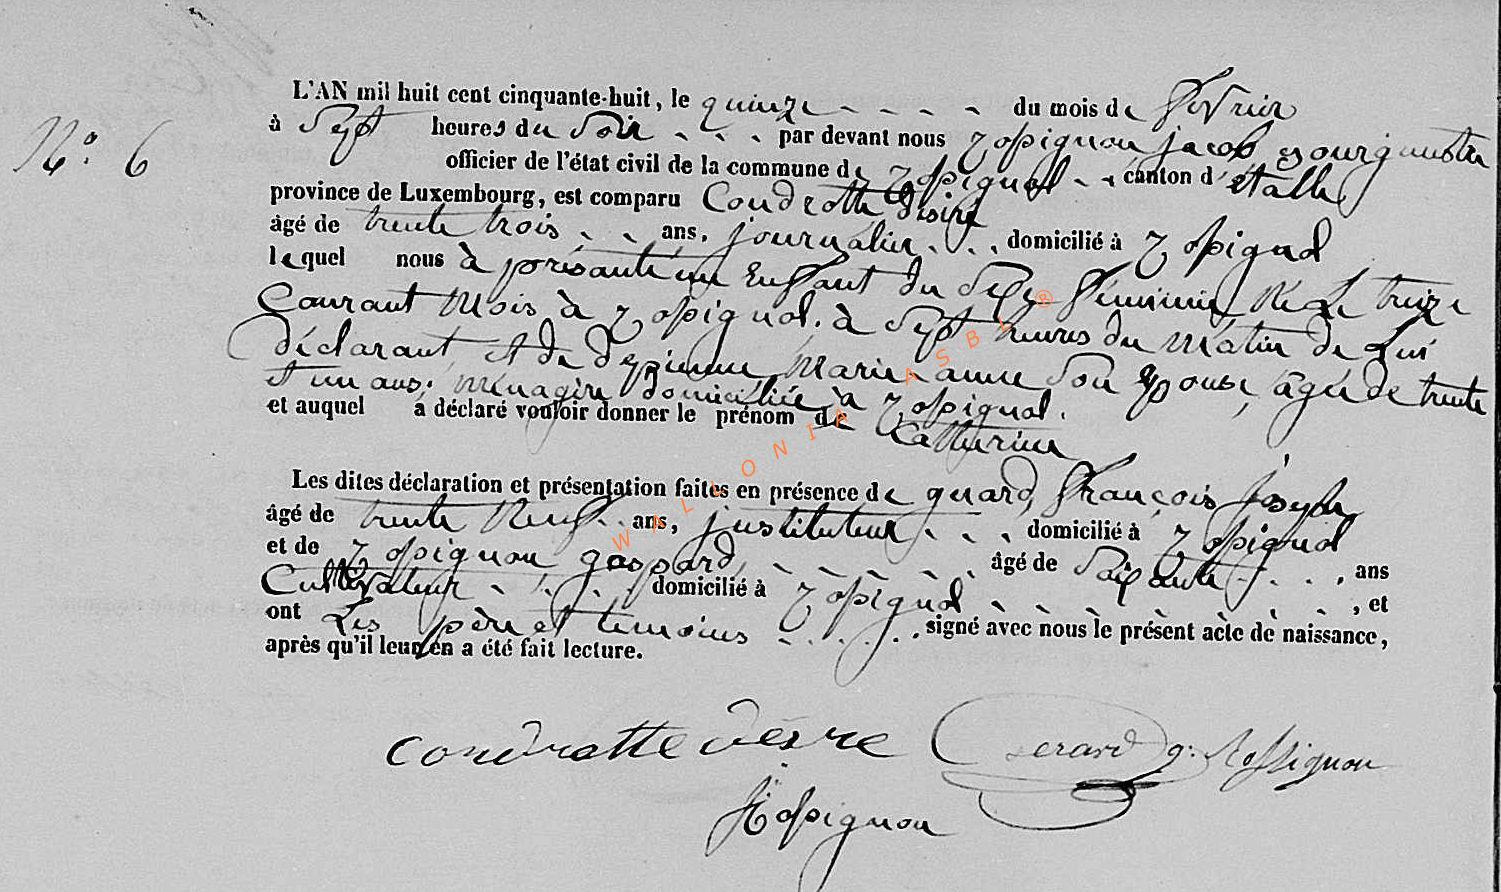 L'AN mil huit cent cinquante-huit, le quinze du mois de fevrier
N° 6
à Sept heures du Soir par devant nous rossignon jacob Bourgmestre
officier de l'état civil de la commune de rossignol canton d'etalle
province de Luxembourg, est comparu Condrotte Désiré
âgé de trente trois ans, journalier domicilié à rossignol
lequel nous à présenté un Enfant du Sexe féminin Né Le treize
Courant Mois à rossignol. à Sept heures du Matin de Lui
déclarant et de Marie anne Son Epouse, âgée de trente
et un ans, ménagère domiciliée à rossignol.
et auquel a déclaré vouloir donner le prénom de Catherine
Les dites déclaration et présentation faites en présence de gerard, françois joseph
âgé de trente Neuf ans, instituteur domicilié à rossignol
et de rossignon gaspard, âgé de Soixante ans
Cultivateur domicilié à rossignol, et
ont Les père et temoins signé avec nous le présent acte de naissance,
après qu'il leur en a été fait lecture.
condrotte désire Gerard g: Rossignon
J Rossignon
WALLONIA ASBL ®